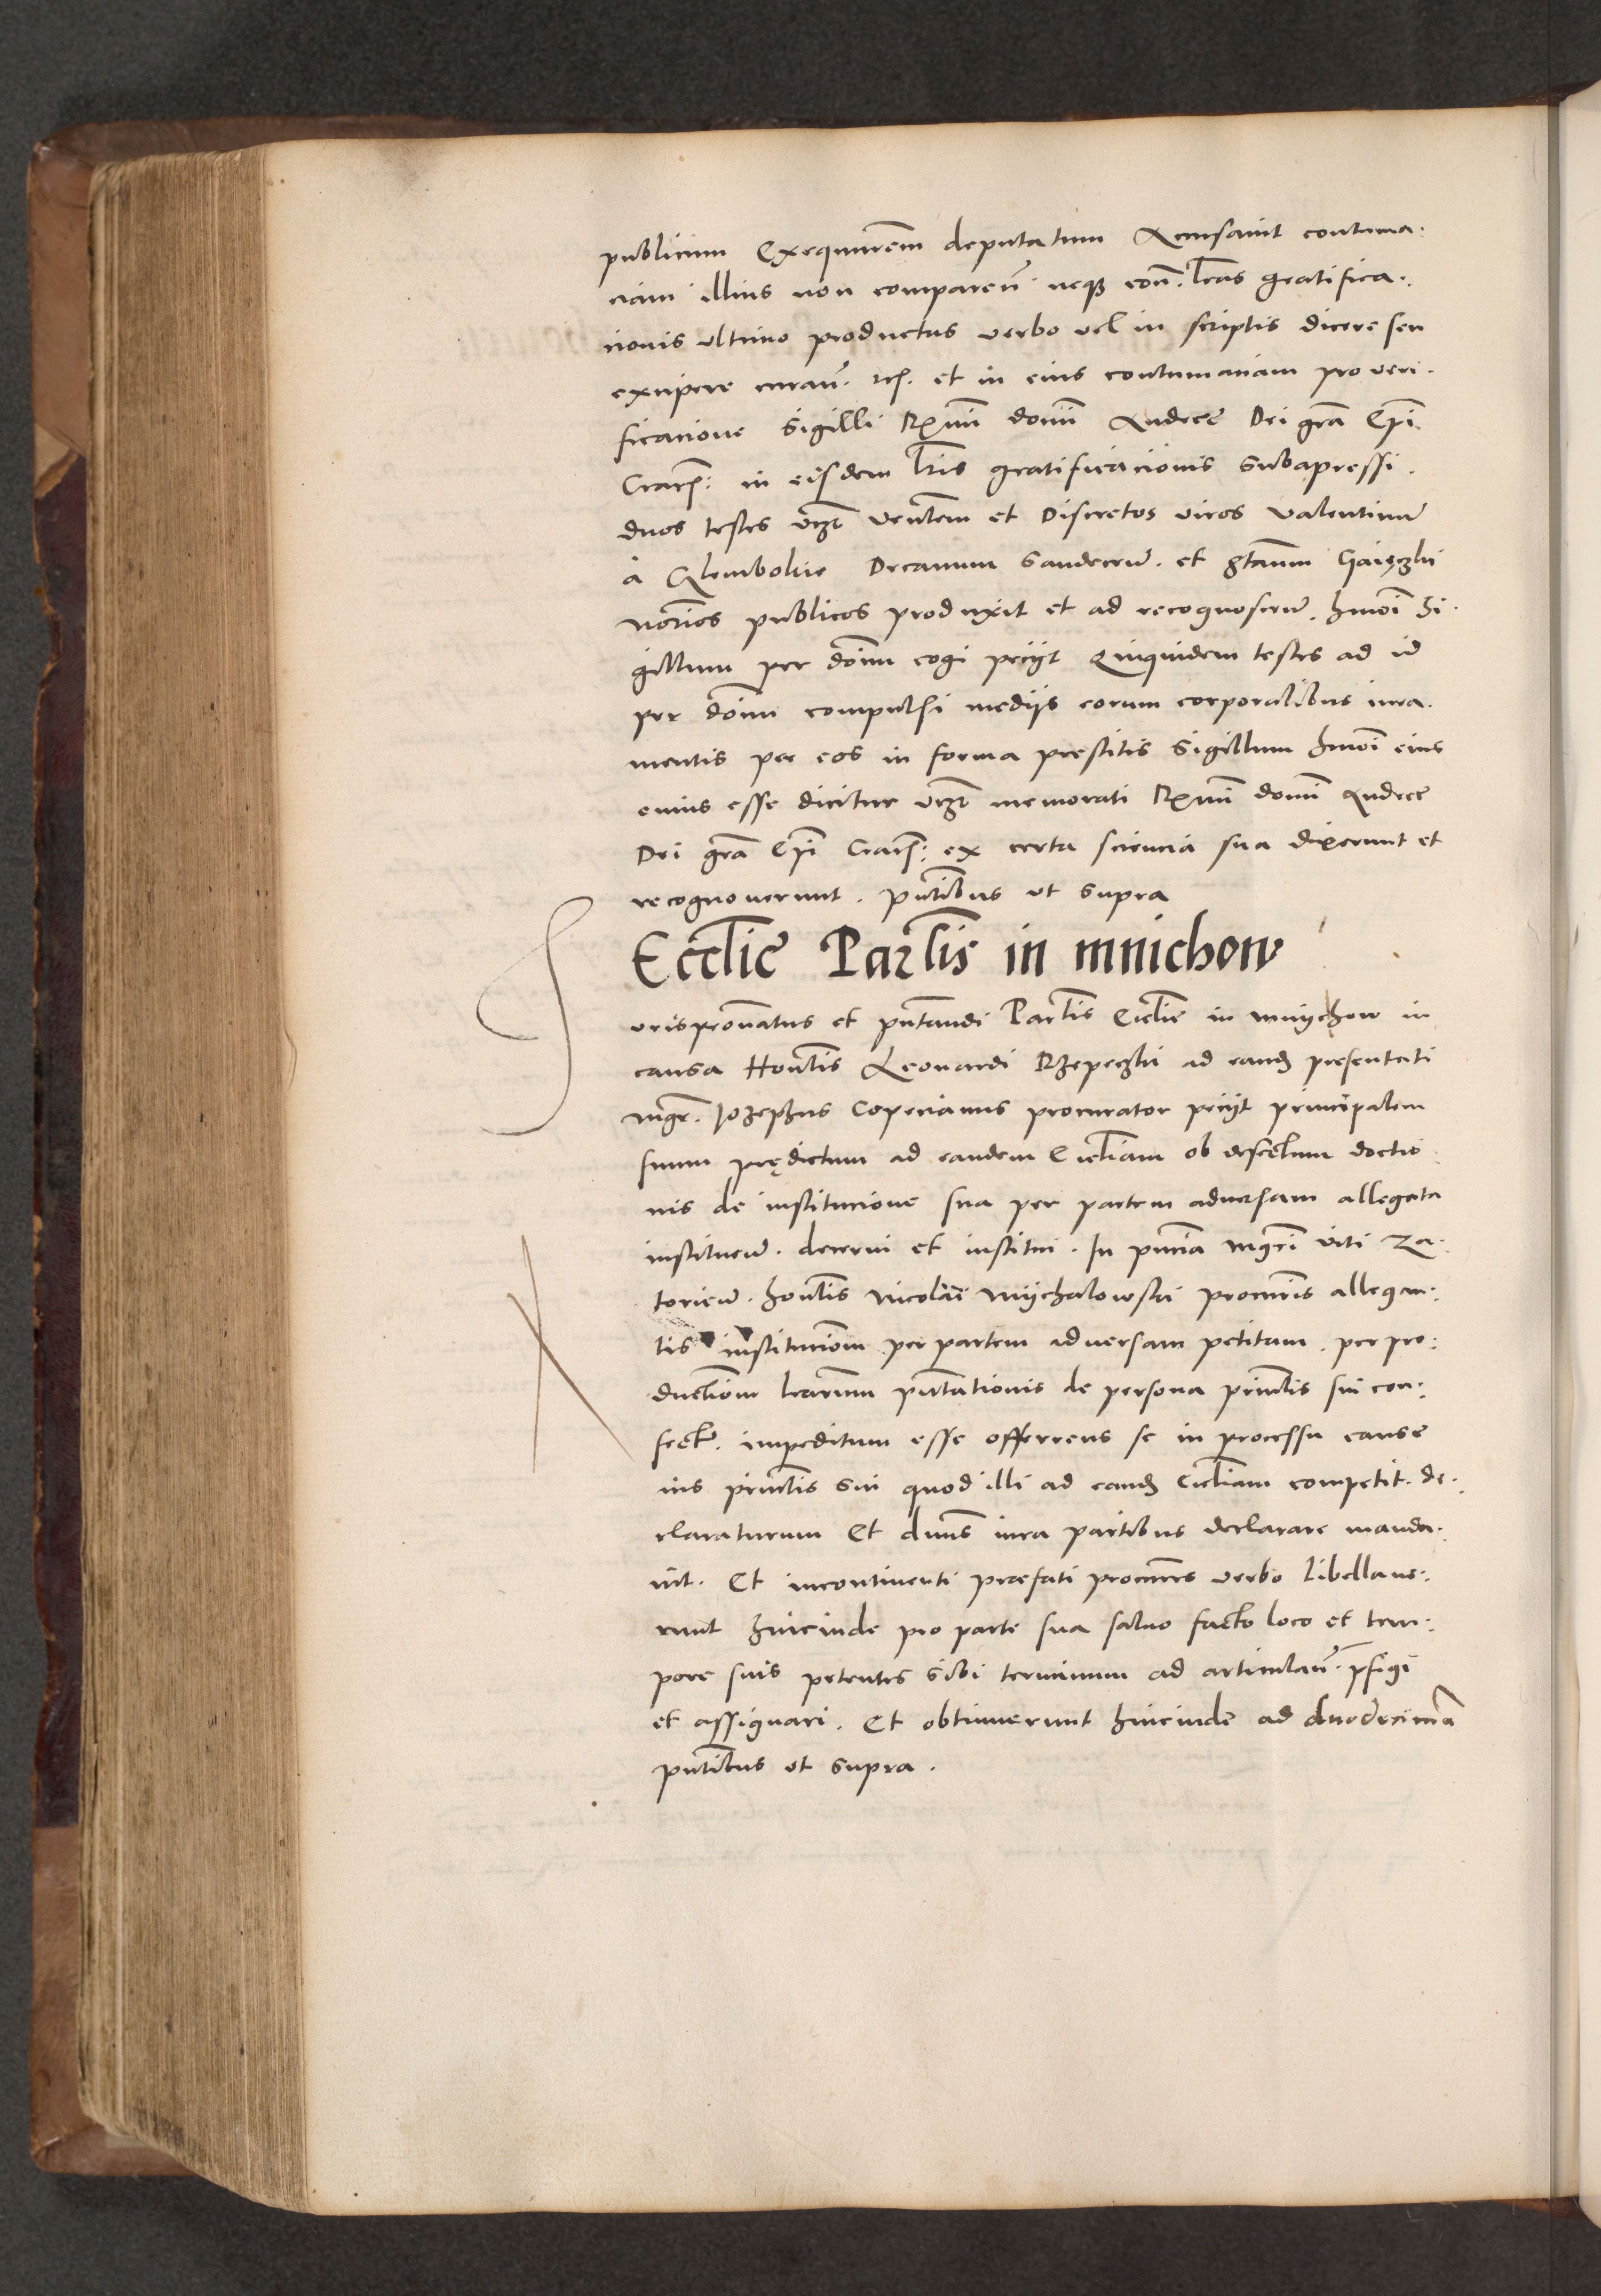 publicum Exequutorem̄ deputatum Accusauit contuma:
ciam illius non comparen̄ neqz con̄. l̄ras gratifica:
cionis ultimo productas verbo vel in scriptis dicere seu
excipere curan̄. et in eius contumaciam pro veri-
ficacione sigilli Rx̄mi dom̄i Andreę Dei gr̄a Ep̄i
Crac̄: in eisdem l̄ris gratificacionis subapressi.
duos testes vz̄ ven̄lem et Discretos viros valentinū
a Clembokie Decanum Sandeceū. et Gaięczki
not̄rios publicos produxit et ad recognoscen̄. hmōi si-
gillum per dom̄m cogi peciit Quiquidem testes ad id
per dom̄m compulsi mediis eorum corporalibus iura-
mentis per eos in forma prestitis sigillum hmōi eius
cuius esse dicitur vz̄ memorati Rx̄mi dom̄i Andreę
Dei gr̄a Ep̄i Crac̄: ex certa sciencia sua dixerunt et
recognouerunt. pn̄tibus ut supra
Eccl̄ie Par̄lis in mnichow
Jurispron̄atus et pn̄tandi Par̄lis Eccl̄ie in mnychow in
causa Hon̄lis Leonardi Rzepeczki ad eandē presentati
mgr̄. Jozephus Copecianus procurator peciit principalem
suum prędictum ad eandem Eccl̄iam ob defectum doctio-
nis de institucione sua per partem aduersam allegata
instituen̄. decerni et institui. In pn̄cia mgr̄i viti Za-
toricū. hon̄lis Nicolai Mijchalowski procur̄is allegan:
tis institucion̄m per partem aduersam petitam. per pro:
duction̄m l̄rarum pn̄tationis de persona prin̄lis sui con:
fect̄. impeditum esse offerrens se in processu causę
ius prin̄lis sui quod illi ad eandē Eccl̄iam competit. de-
claraturum Et dn̄us iura partibus declarare manda-
uit. Et incontinenti praefati procur̄es verbo libellaue-
runt hincinde pro parte sua saluo facto loco et tem:
pore suis petentes sibi terminum ad articulan̄. p̄figi
et assignari. Et obtinuerunt hincinde ad duodecimā
pn̄tibus ut supra.